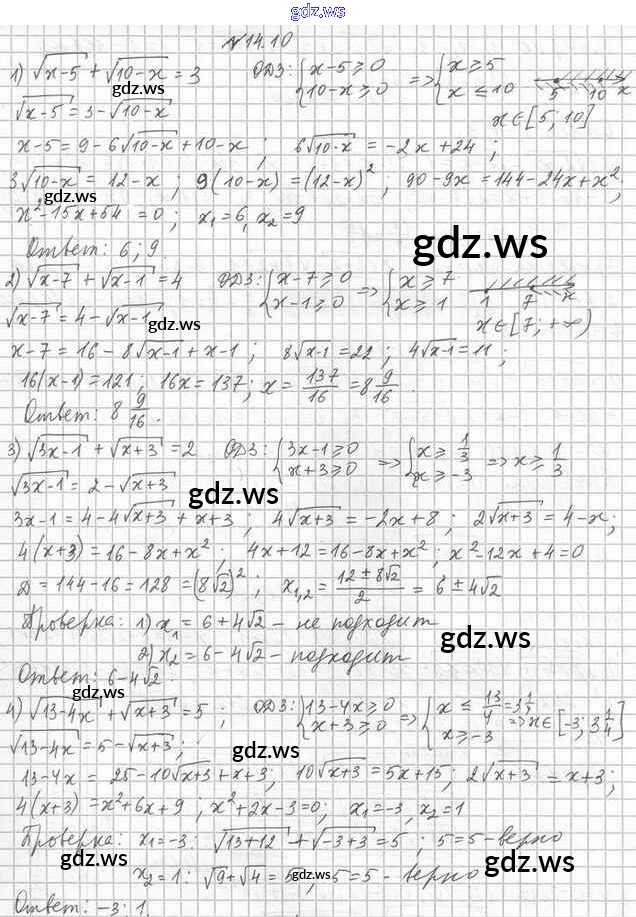 gdz.ws
№14.10
1) √(x-5) + √(10-x) = 3 ОДЗ: { x-5≥0 10-x≥0 => { x≥5 x≤10 5 10 x
gdz.ws
√(x-5) = 3-√(10-x) x∈[5; 10]
x-5 = 9-6√(10-x) + 10-x ; 6√(10-x) = -2x+24 ;
3√(10-x) = 12-x ; 9(10-x) = (12-x)² ; 90-9x = 144-24x+x² ;
gdz.ws
x²-15x+54 = 0 ; x₁=6, x₂=9
Ответ: 6; 9.
gdz.ws
2) √(x-7) + √(x-1) = 4 ОДЗ: { x-7≥0 x-1≥0 => { x≥7 x≥1 1 7 x
√(x-7) = 4-√(x-1) x∈[7; +∞)
gdz.ws
x-7 = 16-8√(x-1) + x-1 ; 8√(x-1) = 22 ; 4√(x-1) = 11 ;
16(x-1) = 121 ; 16x = 137 ; x = 137/16 = 8 9/16 .
gdz.ws
Ответ: 8 9/16 .
3) √(3x-1) + √(x+3) = 2 ОДЗ: { 3x-1≥0 x+3≥0 => { x≥1/3 x≥-3 => x≥1/3
√(3x-1) = 2-√(x+3)
gdz.ws
3x-1 = 4-4√(x+3) + x+3 ; 4√(x+3) = -2x+8 ; 2√(x+3) = 4-x ;
4(x+3) = 16-8x+x² ; 4x+12 = 16-8x+x² ; x²-12x+4=0
D = 144-16 = 128 = (8√2)² ; x₁,₂ = (12±8√2)/2 = 6±4√2
Проверка: 1) x₁ = 6+4√2 - не подходит
gdz.ws
2) x₂ = 6-4√2 - подходит
Ответ: 6-4√2 .
gdz.ws
4) √(13-4x) + √(x+3) = 5 ; ОДЗ: { 13-4x≥0 x+3≥0 => { x≤13/4=3 1/4 x≥-3 => x∈[-3; 3 1/4]
√(13-4x) = 5-√(x+3) ;
gdz.ws
13-4x = 25-10√(x+3) + x+3 ; 10√(x+3) = 5x+15 ; 2√(x+3) = x+3 ;
4(x+3) = x²+6x+9 ; x²+2x-3=0 ; x₁=-3, x₂=1
Проверка: x₁=-3: √(13+12) + √(-3+3) = 5 ; 5=5-верно
gdz.ws
gdz.ws
x₂=1: √9+√4 = 5 , 5=5 - верно
Ответ: -3; 1.
gdz.ws